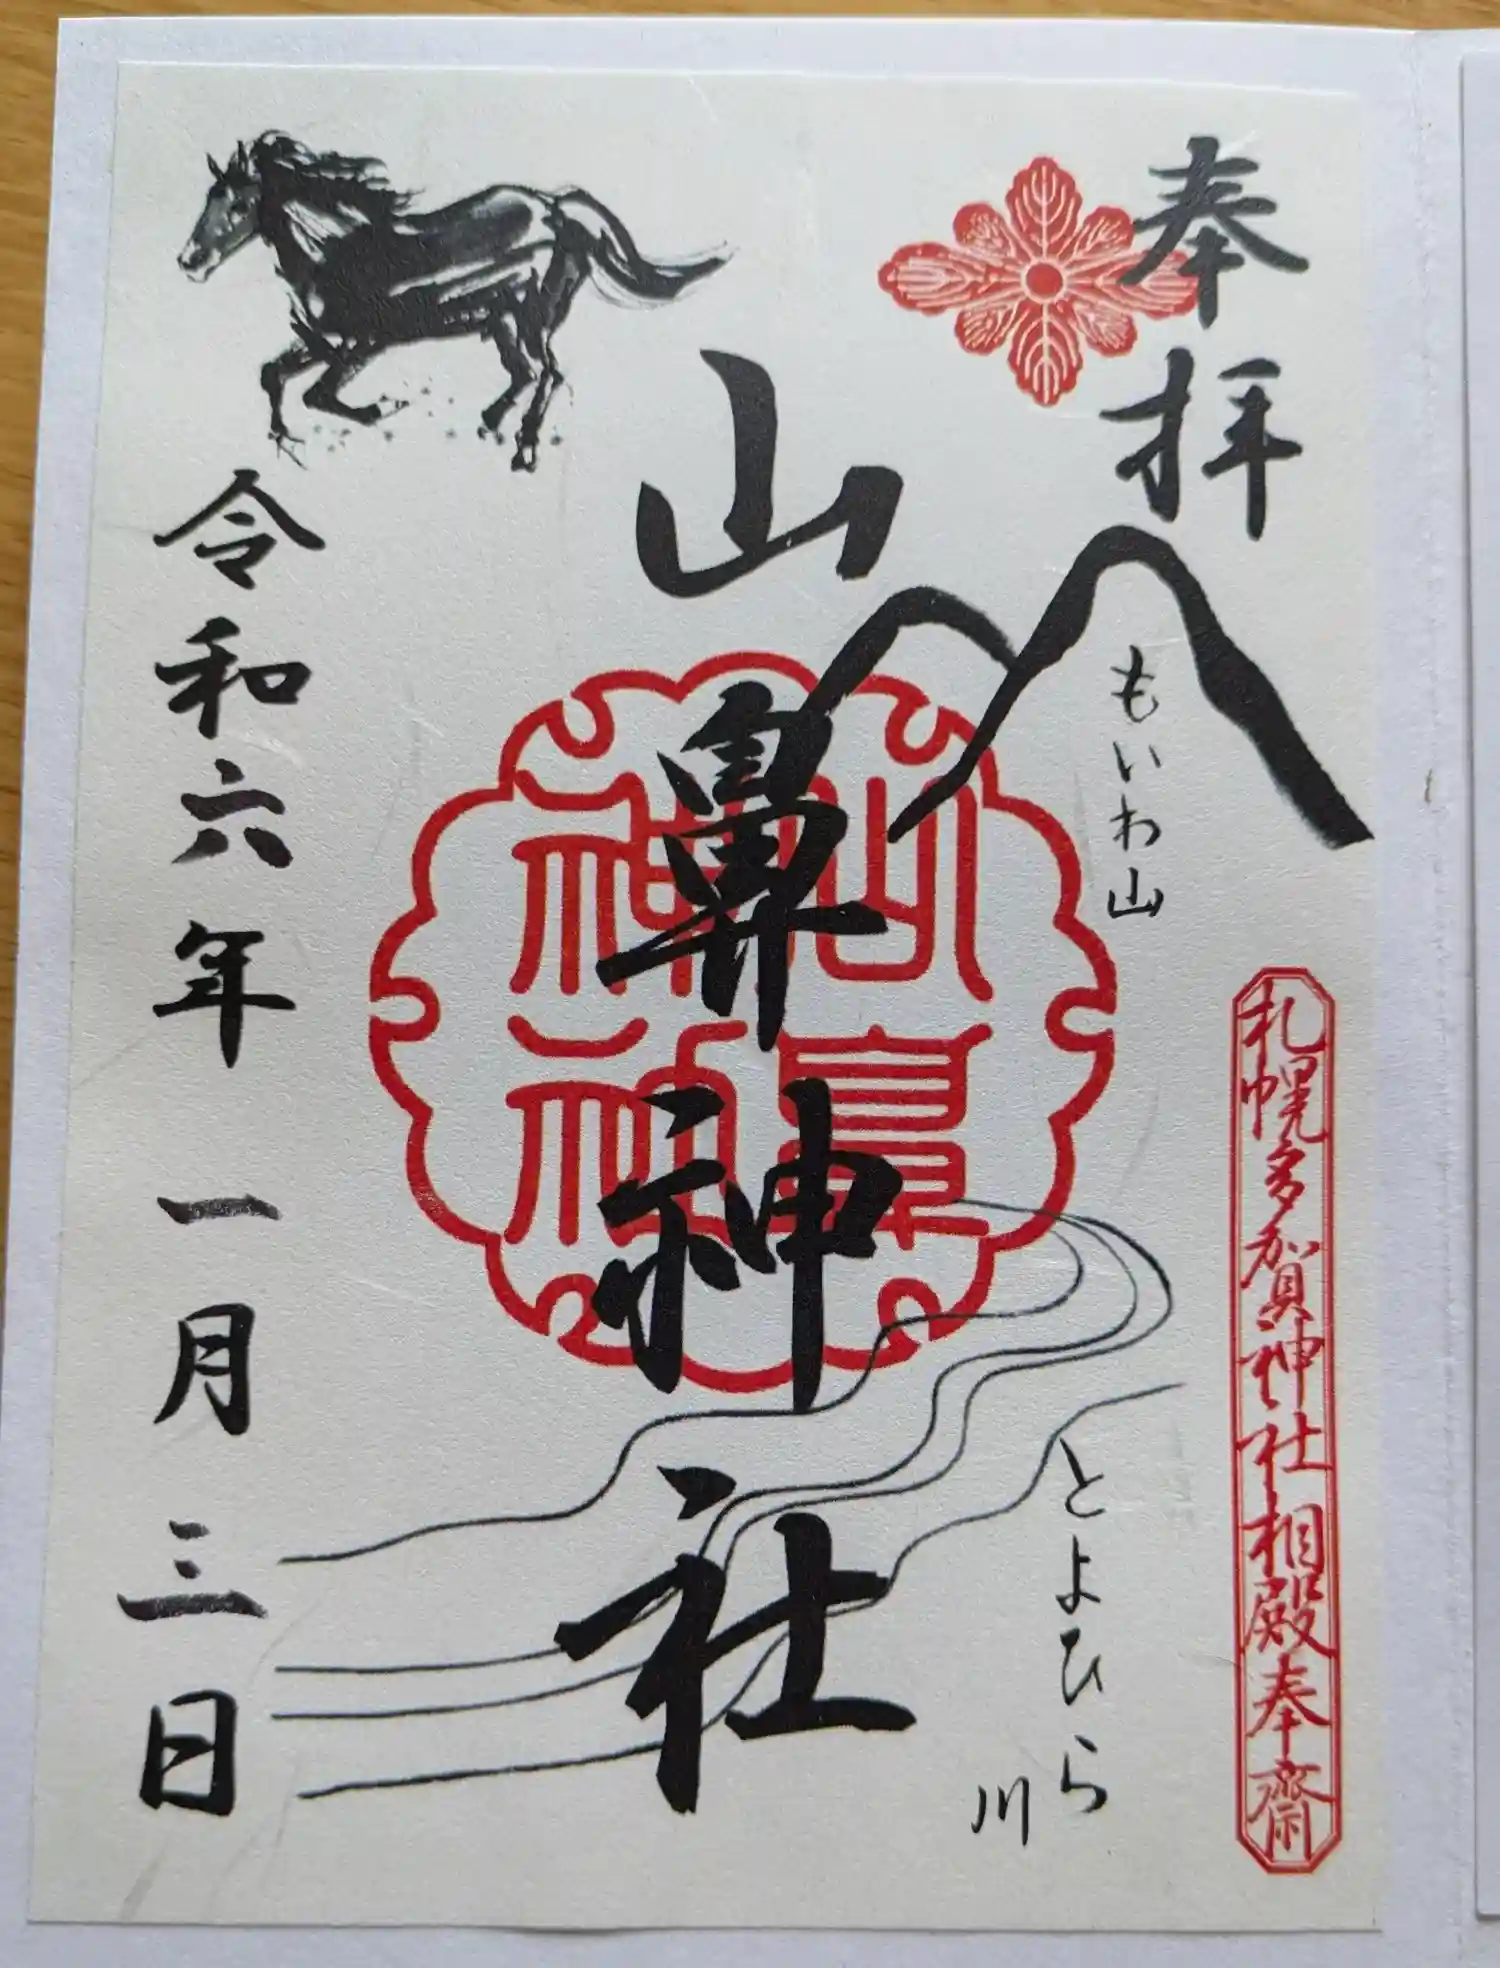 奉拝
もいわ山
札幌多賀神社相殿奉齋
とよひら川
山鼻神社
山鼻神社
令和六年一月三日